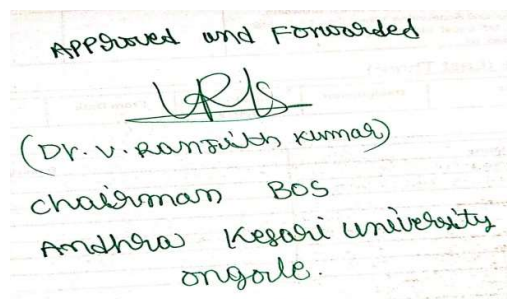 Approved and Forwarded
(Dr. V. Ranjith Kumar)
chairman BOS
Andhra Kesari university
ongole.